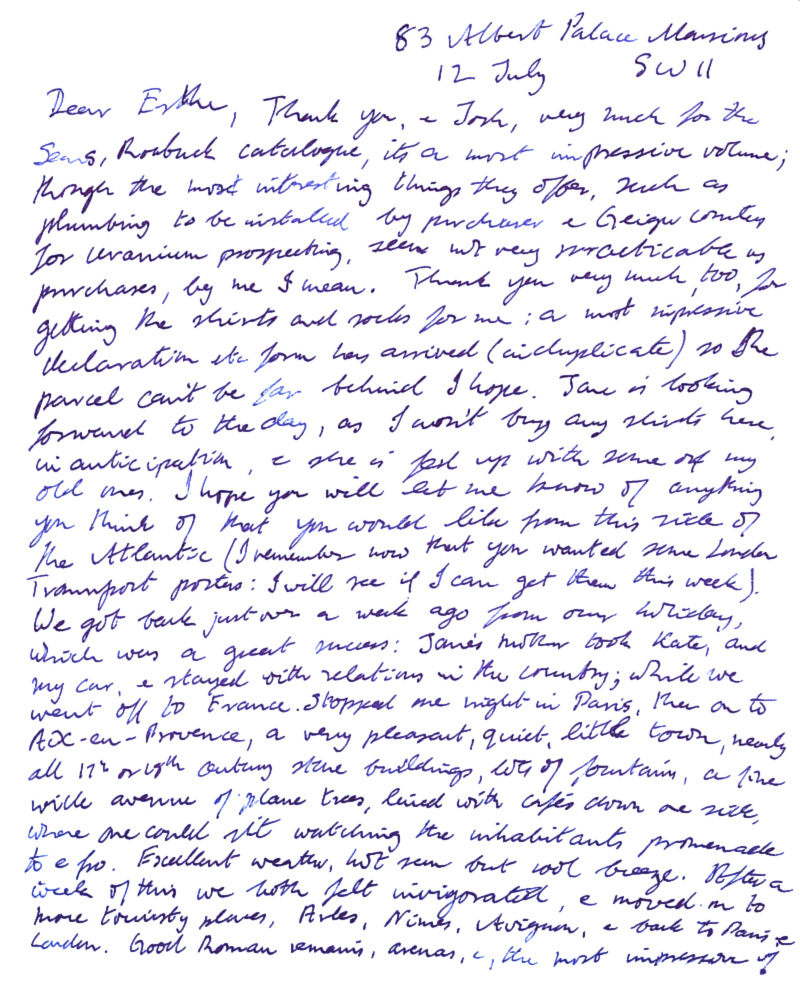 83 Albert Palace Mansions
12 July SW11
Dear Esther, Thank you, & Josh, very much for the
Sears, Roebuck catalogue, its a most impressive volume;
though the most interesting things they offer, such as
plumbing to be installed by purchaser & Geiger counters
for uranium prospecting, seem not very practicable as
purchases, by me I mean. Thank you very much, too, for
getting the shirts and socks for me; a most impressive
declaration etc form has arrived (in duplicate) so the
parcel can't be far behind I hope. Jane is looking
forward to the day, as I won't buy any shirts here,
in anticipation, & she is fed up with some of my
old ones. I hope you will let me know of anything
you think of that you would like from this side of
the Atlantic (I remember now that you wanted some London
Transport posters: I will see if I can get them this week).
We got back just over a week ago from our holiday,
which was a great success: Jane's mother took Kate, and
my car, & stayed with relations in the country; while we
went off to France. Stopped one night in Paris, then on to
Aix-en-Provence, a very pleasant, quiet, little town, nearly
all 17th or 18th century stone buildings, lots of fountains, a fine
wide avenue of plane trees, lined with cafés down one side,
where one could sit watching the inhabitants promenade
to & fro. Excellent weather, hot sun but cool breeze. After a
week of this we both felt invigorated, & moved on to
more touristy places, Arles, Nimes, Avignon, & back to Paris &
London. Good Roman remains, arenas, &, the most impressive of